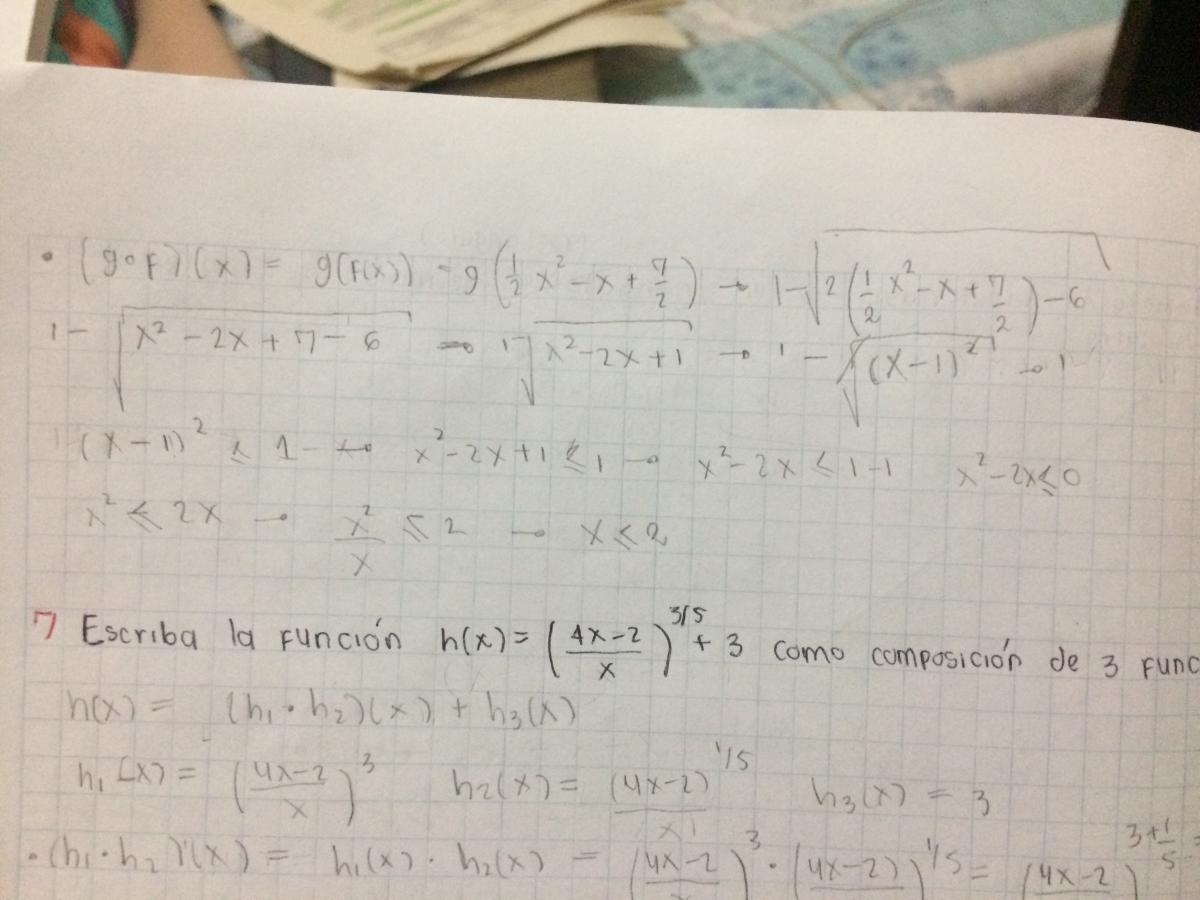 • (g∘f)(x) = g(f(x)) = g(1/2 x² - x + 7/2) → 1-√(2(1/2 x² - x + 7/2) - 6)
1 - √(x² - 2x + 7 - 6) → 1-√(x² - 2x + 1) → 1 - √((x-1)²) → 1
(x-1)² ≤ 1 → x² - 2x + 1 ≤ 1 → x² - 2x ≤ 1-1 x² - 2x ≤ 0
x² ≤ 2x → x²/x ≤ 2 → x ≤ 2
7 Escriba la función h(x) = ((4x-2)/x)^(3/5) + 3 como composición de 3 func
h(x) = (h₁·h₂)(x) + h₃(x)
h₁(x) = ((4x-2)/x)³ h₂(x) = ((4x-2)/x)^(1/5) h₃(x) = 3
• (h₁·h₂)(x) = h₁(x)·h₂(x) = ((4x-2)/x)³ · (4x-2)^(1/5) = (4x-2)^(3+1/5) =